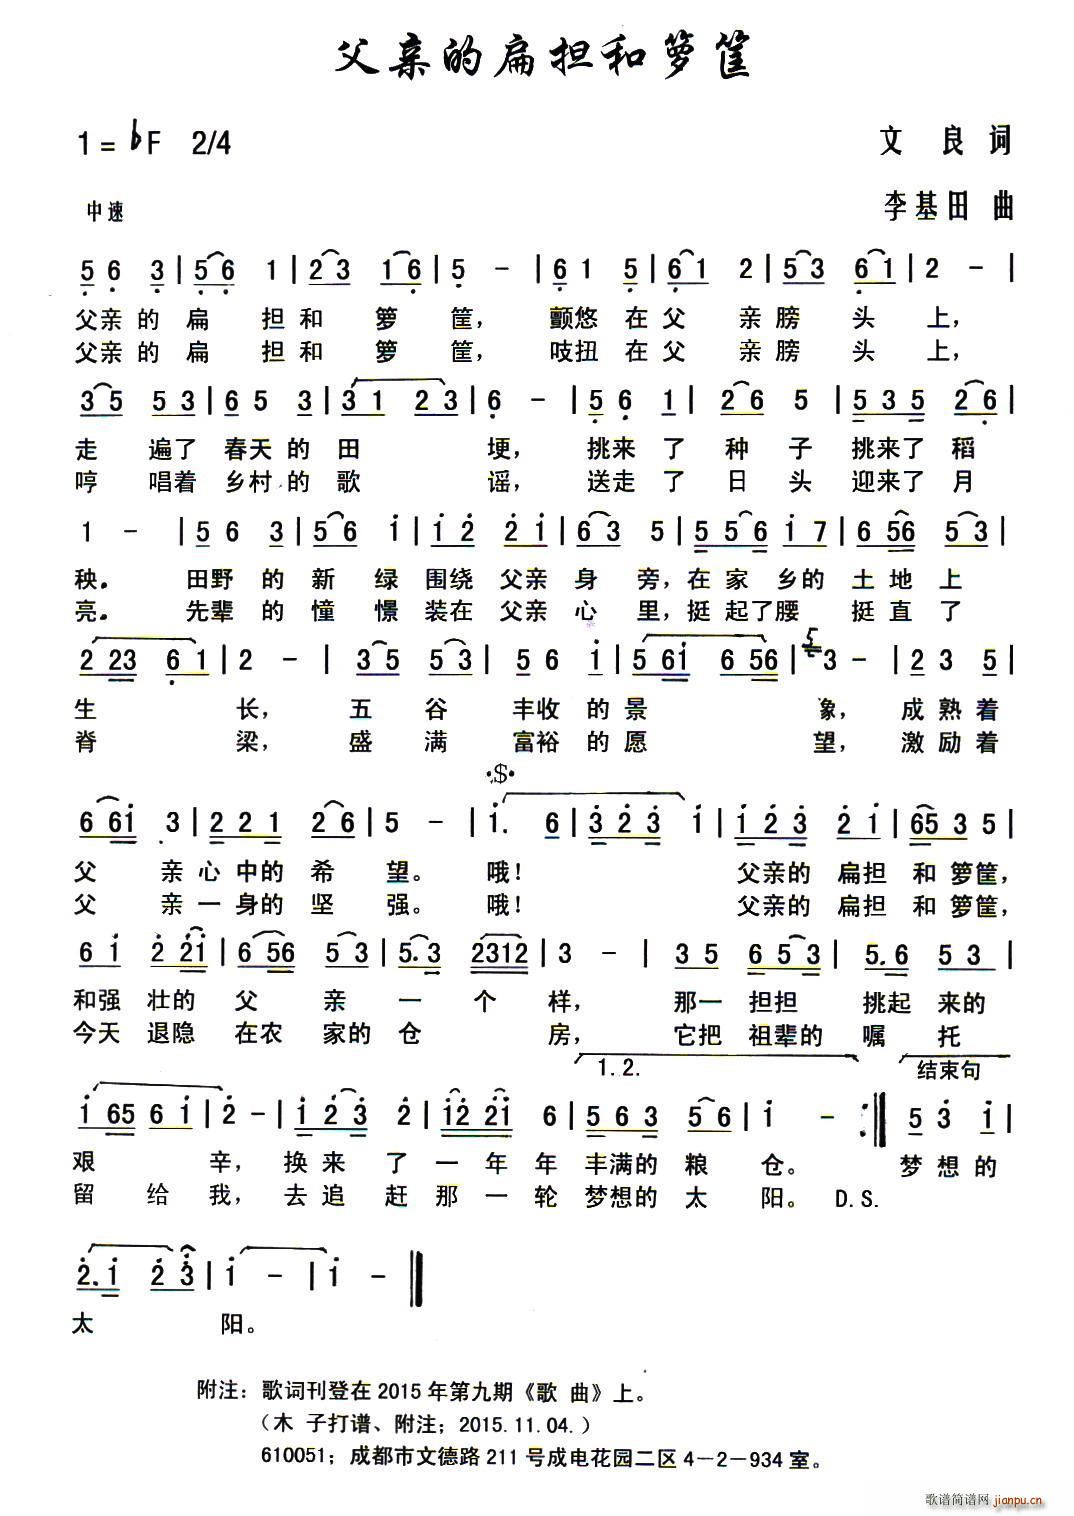 父亲的扁担和箩筐
1=♭F 2/4
文 良 词
中速
李基田 曲
5 6 3 | 5 6 1 | 2 3 1 6 | 5 - | 6 1 5 | 6 1 2 | 5 3 6 1 | 2 - |
父亲 的 扁 担 和 箩 筐， 颤悠 在 父 亲 膀 头 上，
父亲 的 扁 担 和 箩 筐， 吱扭 在 父 亲 膀 头 上，
3 5 5 3 | 6 5 3 | 3 1 2 3 | 6 - | 5 6 1 | 2 6 5 | 5 3 5 2 6 |
走 遍了 春天 的 田 埂， 挑来 了 种 子 挑来了 稻
哼 唱着 乡村 的 歌 谣， 送走 了 日 头 迎来了 月
1 - | 5 6 3 | 5 6 i | i 2 2 i | 6 3 5 | 5 5 6 i 7 | 6 56 5 3 |
秧。 田野 的 新 绿 围绕 父亲 身 旁，在 家 乡的 土地 上
亮。 先辈 的 憧 憬 装在 父亲 心 里，挺 起了腰 挺 直了
2 23 6 1 | 2 - | 3 5 5 3 | 5 6 i | 5 6i 6 56 | 5 3 - | 2 3 5 |
生 长， 五 谷 丰收 的 景 象， 成 熟 着
脊 梁， 盛 满 富裕 的 愿 望， 激 励 着
𝄋
6 6i 3 | 2 2 1 2 6 | 5 - | i. 6 | 3 2 3 i | i 2 3 2 i | 65 3 5 |
父 亲 心 中的 希 望。 哦！ 父亲的 扁担 和 箩筐，
父 亲 一 身的 坚 强。 哦！ 父亲的 扁担 和 箩筐，
6 i 2 2i | 6 56 5 3 | 5.3 2312 | 3 - | 3 5 6 5 3 | 5.6 5 3 |
和强 壮的 父 亲 一 个 样， 那一 担担 挑起 来的
今天 退隐 在农 家的 仓 房， 它把 祖辈的 嘱 托
1.2.
结束句
i 65 6 i | 2 - | i 2 3 2 | i2 2i 6 | 5 6 3 5 6 | i - :‖ 5 3 i |
艰 辛，换 来 了 一 年 年 丰满的 粮 仓。 梦 想 的
留 给 我，去 追 赶 那 一 轮 梦想的 太 阳。 D.S.
2.i 2 3 | i - | i - ‖
太 阳。
附注：歌词刊登在2015年第九期《歌 曲》上。
（木 子打谱、附注；2015.11.04.）
610051；成都市文德路211号成电花园二区4－2－934室。
歌谱简谱网 jianpu.cn